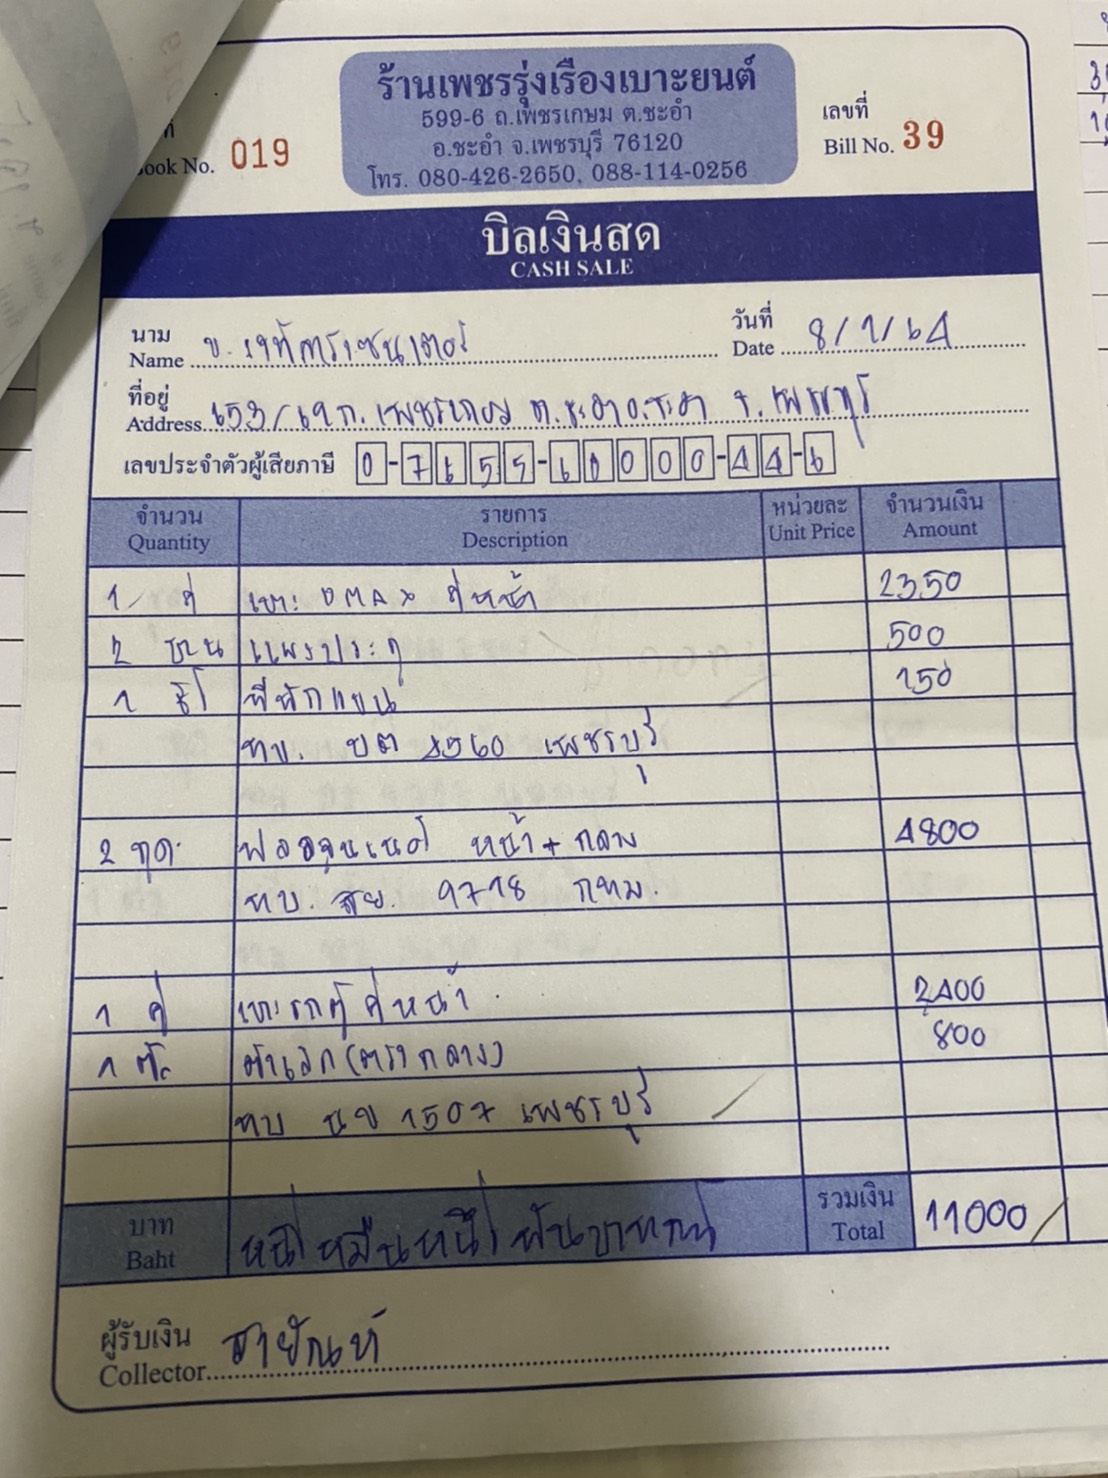 ร้านเพชรรุ่งเรืองเบาะยนต์
599-6 ถ.เพชรเกษม ต.ชะอำ
อ.ชะอำ จ.เพชรบุรี 76120
โทร. 080-426-2650, 088-114-0256
ook No. 019
เลขที่
Bill No. 39
บิลเงินสด
CASH SALE
นาม
Name
วันที่
Date 8/1/64
ที่อยู่
Address 653/ ถ. เพชรเกษม ต.ชะอำ อ.ชะอำ จ. เพชรบุรี
เลขประจำตัวผู้เสียภาษี 0-7655-60000-44-6
จำนวน รายการ หน่วยละ จำนวนเงิน
Quantity Description Unit Price Amount
1 คู่ เบาะ DMAX คู่หน้า 2350
2 ชิ้น แผงประตู 500
1 ที่พักแขน 150
ทบ. บต 8560 เพชรบุรี
2 ชุด ฟอจูนเนอร์ หน้า + กลาง 4800
ทบ. 9718 กทม.
1 คู่ เบาะรถตู้ คู่หน้า 2400
1 ตัว ตัวเล็ก (ตรงกลาง) 800
ทบ นข 1507 เพชรบุรี
บาท
Baht หนึ่งหมื่นหนึ่งพันบาทถ้วน
รวมเงิน
Total 11000
ผู้รับเงิน
Collector สายัณห์